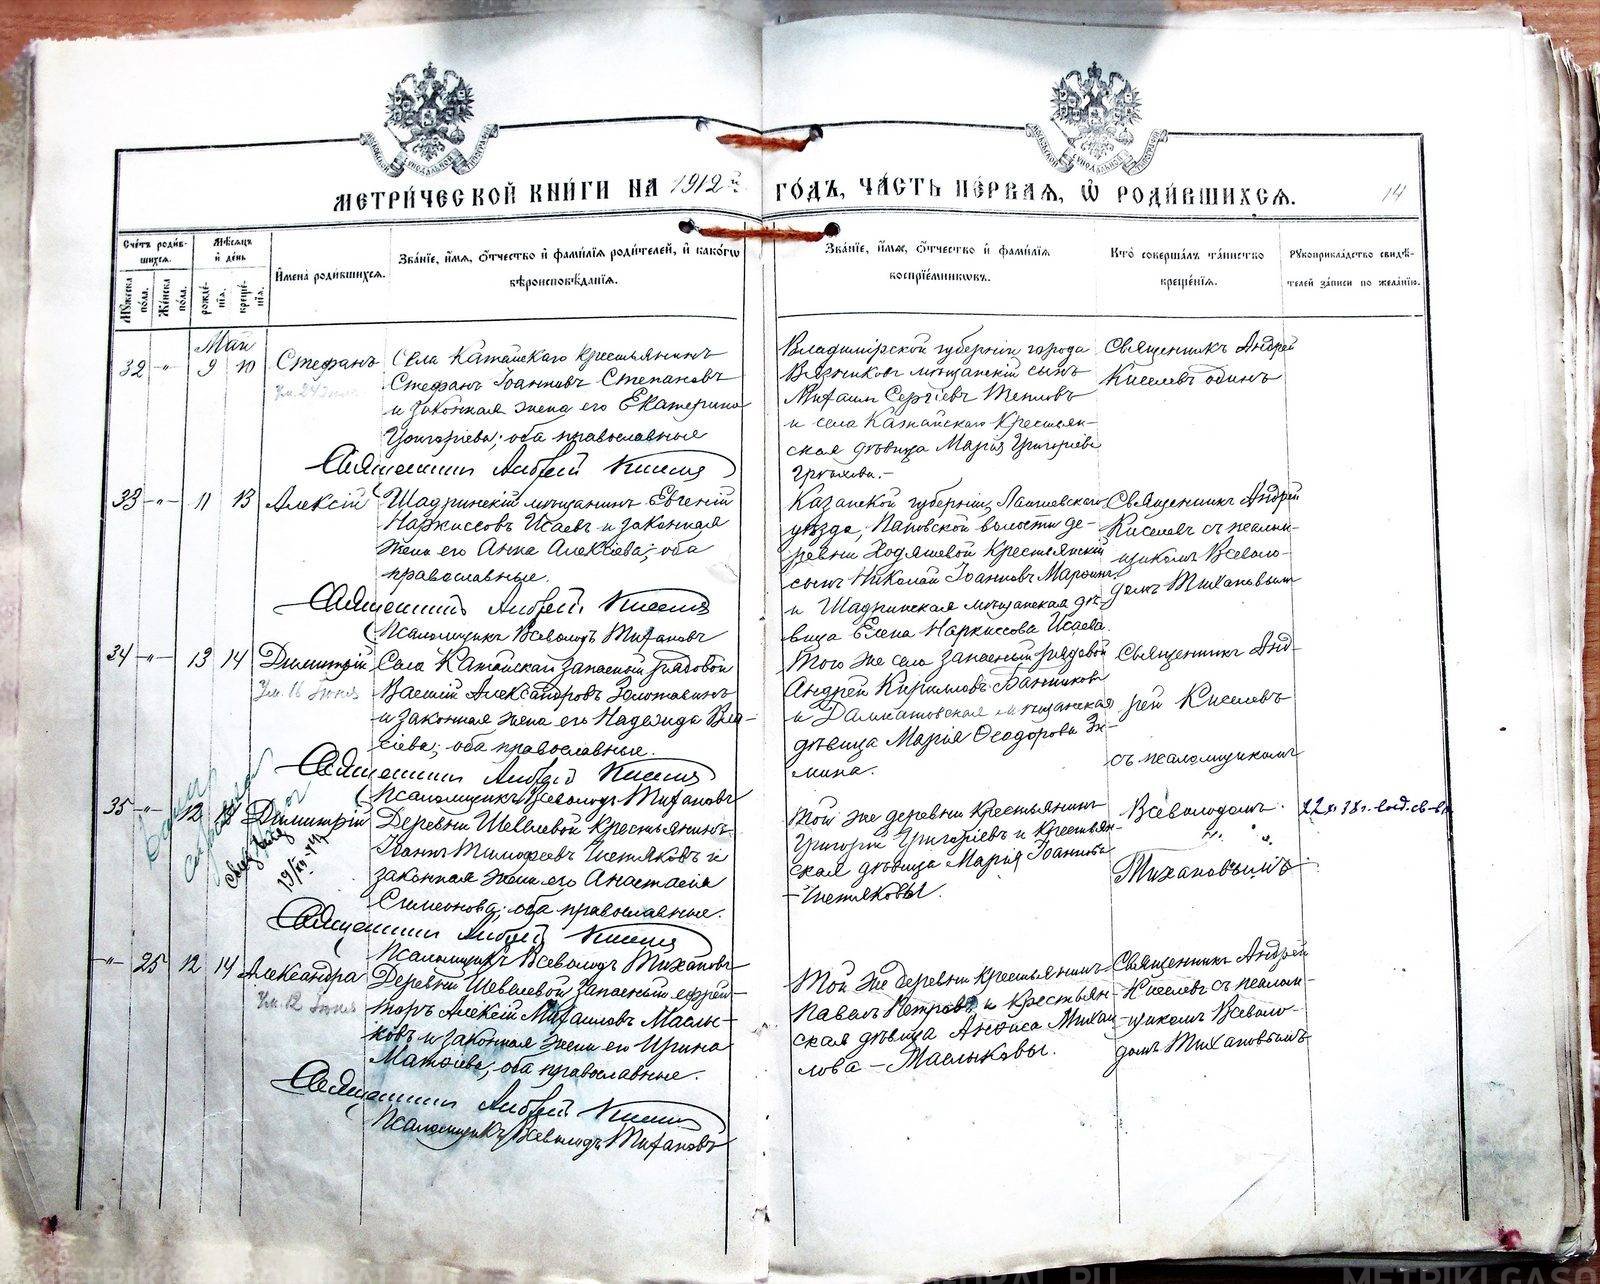 МЕТРИ́ЧЕСКОЙ КНИ́ГИ НА 1912 й ГО́ДЪ, ЧА́СТЬ ПЕ́РВАЯ, Ѿ РОДИ́ВШИХСЯ. 14
Счетъ роди́в-
шихся.
Му́жеска по́ла.
Же́нска по́ла.
Мѣ́сяцъ и день
рожде́-нїя.
креще́-нїя.
Имена̀ роди́вшихся.
Зва́нїе, и́мя, о́тчество и фами́лїя роди́телей, и како́гѡ
вѣроисповѣ́данїя.
Зва́нїе, и́мя, о́тчество и фами́лїя
воспрїе́мникѡвъ.
Кто̀ соверша́лъ та́инство
креще́нїя.
Рукоприкла́дство свидѣ́-
телей за́писи по жела́нїю.
Май
32 -"- 9 10 Стефанъ
Ум. 24 Июня
Села Катайскаго крестьянинъ
Стефанъ Іоанновъ Степановъ
и законная жена его Екатерина
Григоріева; оба православные
Священникъ Андрей Киселевъ
Владимірской губерніи города
Вязниковъ мѣщанскій сынъ
Михаилъ Сергіевъ Тепловъ
и села Катайскаго крестьян-
ская дѣвица Марія Григоріева
Священникъ Андрей
Киселевъ одинъ
33 -"- 11 13 Алексій
Шадринскій мѣщанинъ Евгеній
Наркиссовъ Исаевъ и законная
жена его Анна Алексіева; оба
православные.
Священникъ Андрей Киселевъ
Псаломщикъ Всеволодъ Тихановъ
Казанской губерніи, Лаишевскаго
уѣзда, Пановской волости де-
ревни Ходяшевой крестьянскій
сынъ Николай Іоанновъ
и Шадринская мѣщанская дѣ-
вица Елена Наркиссова Исаева.
Священникъ Андрей
Киселевъ съ псалом-
щикомъ Всеволо-
домъ Тихановымъ
34 -"- 13 14 Димитрій
Ум. 16 Июня
Села Катайскаго запасный рядовой
Василій Александровъ Золотавинъ
и законная жена его Надежда Вла-
сіева; оба православные.
Священникъ Андрей Киселевъ
Псаломщикъ Всеволодъ Тихановъ
Того же села запасный рядовой
Андрей Кирилловъ Банниковъ
и Далматовская мѣщанская
дѣвица Марія Ѳеодорова Зы-
мина.
Священникъ Анд-
рей Киселевъ
съ псаломщикомъ
35 -"- 12 14 Димитрій
19/XII-44
Деревни Шевелевой крестьянинъ
Іоаннъ Тимоѳеевъ Чистяковъ и
законная жена его Анастасія
Симеонова; оба православные.
Священникъ Андрей Киселевъ
Псаломщикъ Всеволодъ Тихановъ
Той же деревни крестьянинъ
Григорій Григоріевъ и крестьян-
ская дѣвица Марія Іоаннова
- Чистяковы.
Всеволодомъ
Тихановымъ
-"- 25 12 14 Александра
Ум. 12 Июня
Деревни Шевелевой запасный ефрей-
торъ Алексій Михаиловъ Маслы-
ковъ и законная жена его Ирина
Матѳіева; оба православные.
Священникъ Андрей Киселевъ
Псаломщикъ Всеволодъ Тихановъ
Той же деревни крестьянинъ
Павелъ Петровъ и крестьян-
ская дѣвица Анфиса Михаи-
лова - Маслыковы.
Священникъ Андрей
Киселевъ съ псалом-
щикомъ Всеволо-
домъ Тихановымъ